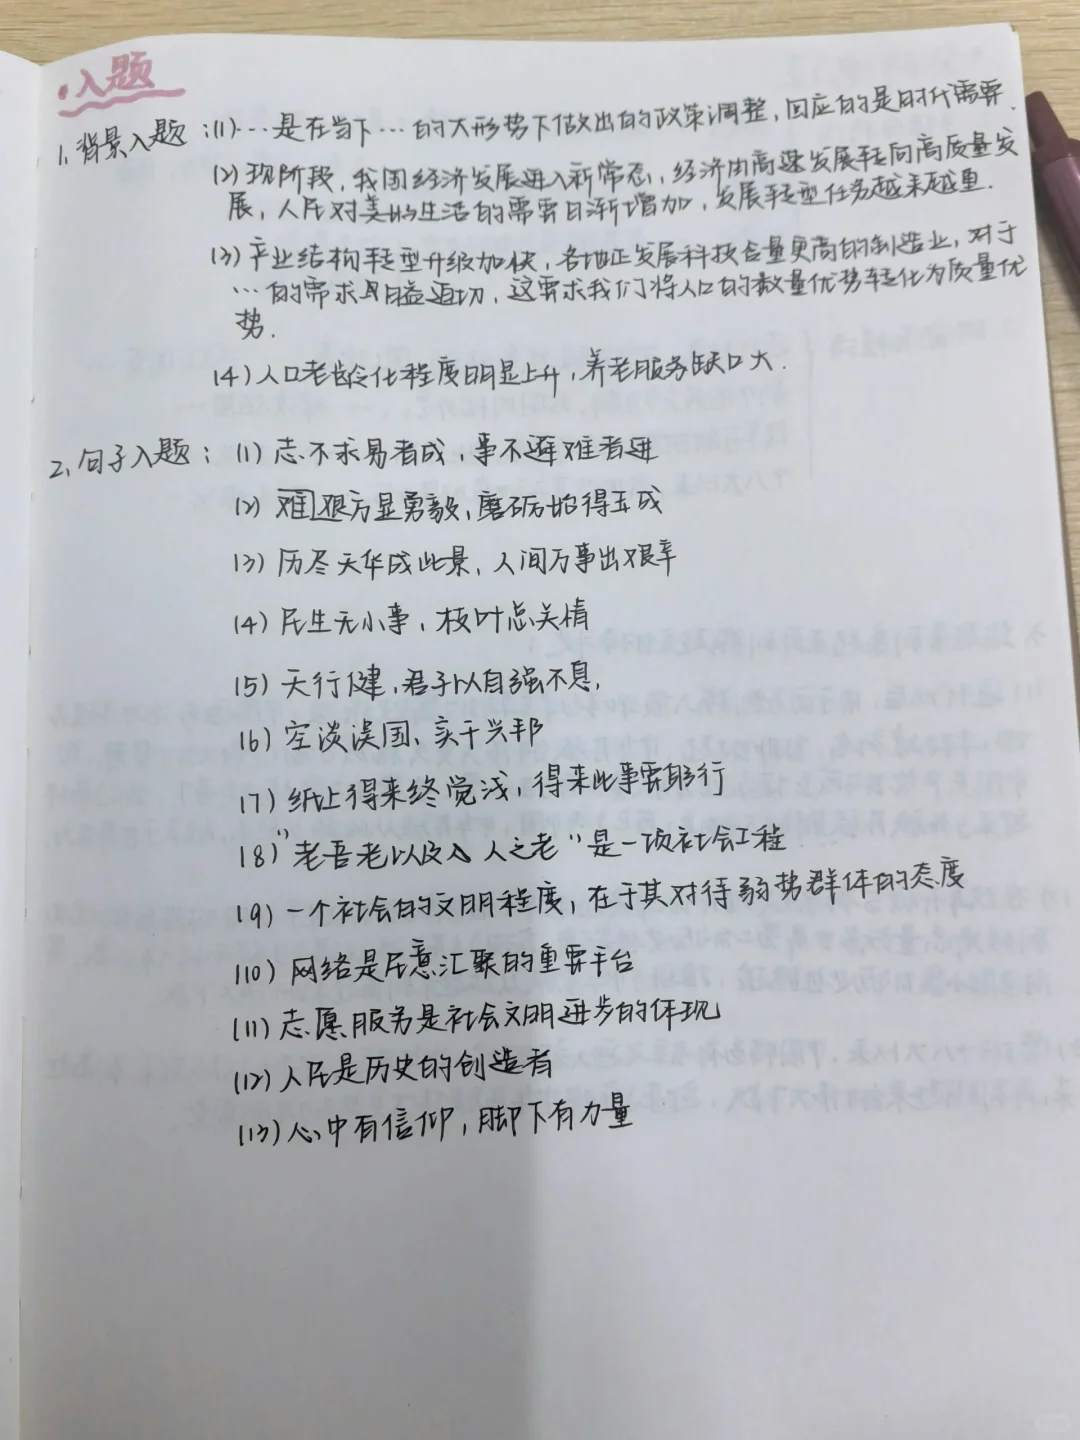 ·入题
1. 背景入题：(1)…是在当下…的大形势下做出的政策调整，回应的是时代需要.
(2) 现阶段，我国经济发展进入新常态，经济由高速发展转向高质量发
展，人民对美好生活的需要日渐增加，发展转型任务越来越重.
(3) 产业结构转型升级加快，各地正发展科技含量更高的制造业，对于
…的需求日益迫切，这要求我们将人口的数量优势转化为质量优
势.
(4) 人口老龄化程度明显上升，养老服务缺口大.
2. 句子入题：(1) 志不求易者成，事不避难者进
(2) 艰方显勇毅，磨砺始得玉成
(3) 历尽天华成此景，人间万事出艰辛
(4) 民生无小事，枝叶总关情
(5) 天行健，君子以自强不息，
(6) 空谈误国，实干兴邦
(7) 纸上得来终觉浅，得来此事要躬行
(8) "老吾老以及人之老"是一项社会工程
(9) 一个社会的文明程度，在于其对待弱势群体的态度
(10) 网络是民意汇聚的重要平台
(11) 志愿服务是社会文明进步的体现
(12) 人民是历史的创造者
(13) 心中有信仰，脚下有力量